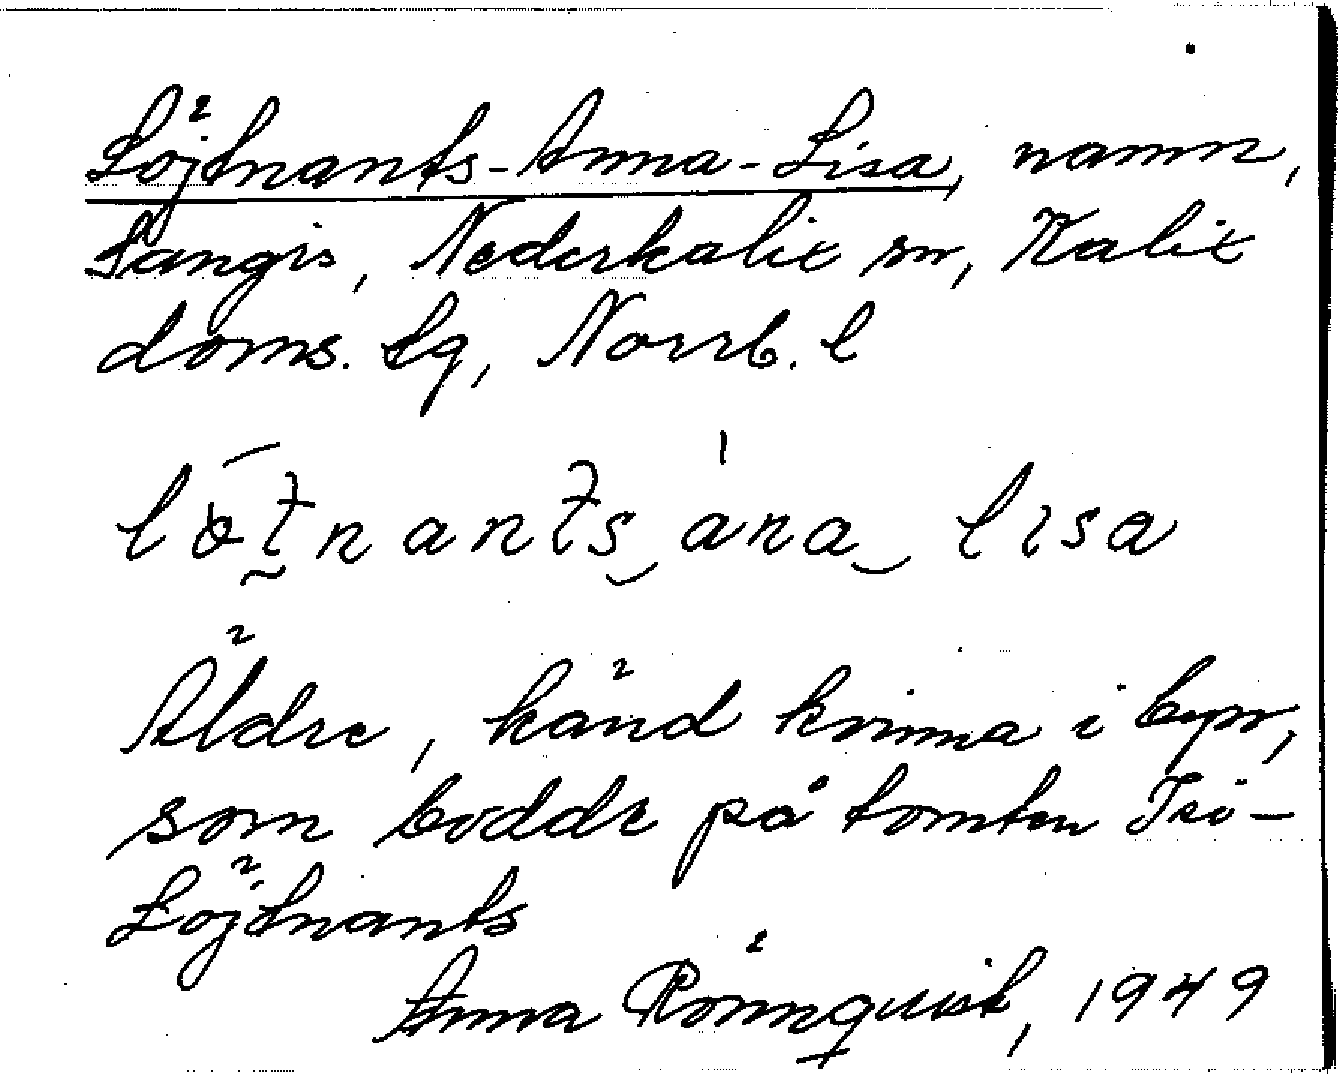 Löjtnants-Anna-Lisa, namn,
Sangis, Nederkalix sn, Kalix
doms. tg, Norrb. l
Äldre, känd kvinna i byn,
som bodde på tomten
Löjtnants
Anna Rönnquist, 1949